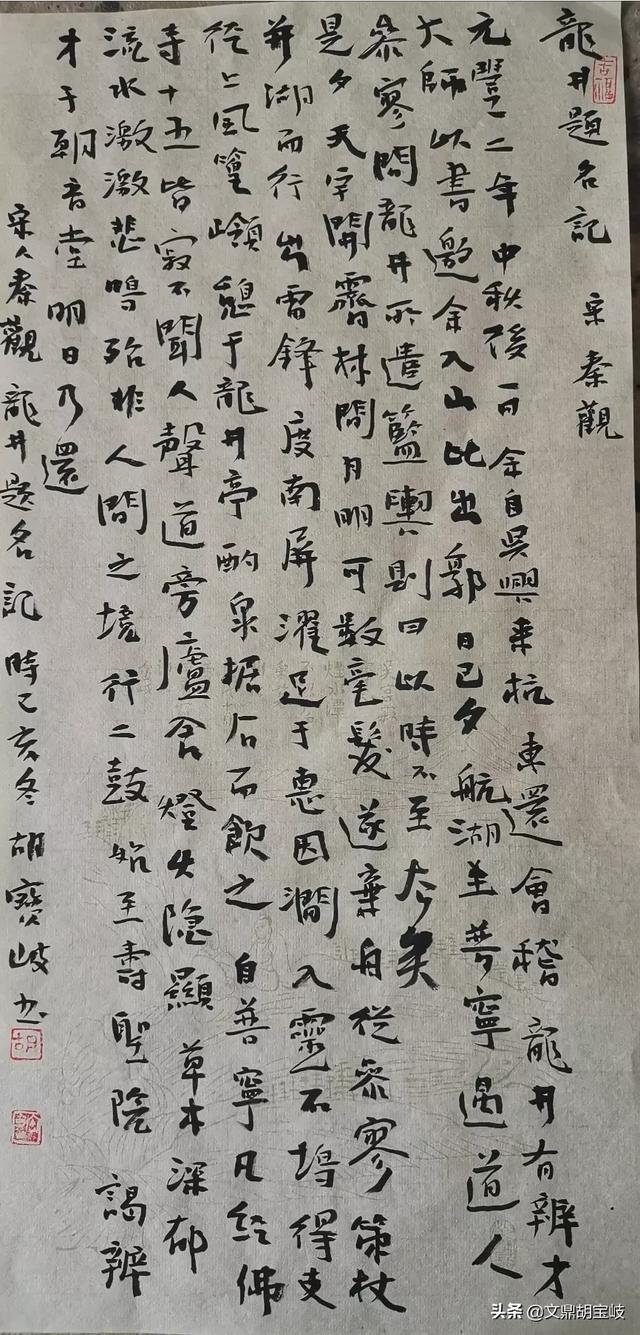 龍井題名記 宋秦觀
元豐二年中秋後一日余自吳興來杭東還會稽龍井有辨才
大師以書邀余入山比出郭日已夕航湖至普寧遇道人
參寥問龍井所遣籃輿則曰以時不至去矣
是夕天宇開霽林間月明可數毫髮遂棄舟從參寥策杖
并湖而行出雷鋒度南屏濯足于惠因澗入靈石塢得支
徑上風篁嶺憩于龍井亭酌泉据石而飲之自普寧凡經佛
寺十五皆寂不聞人聲道旁廬舍燈火隱顯草木深郁
流水激激悲鳴殆非人間之境行二鼓始至壽聖院謁辨
才于朝音堂明日乃還
宋人秦觀龍井題名記時乙亥冬胡寶岐書
吉福
胡
头条 @文鼎胡宝岐